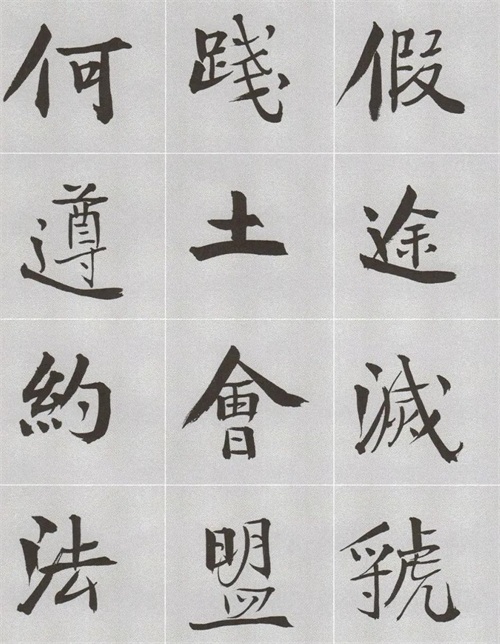 假途滅虢
踐土會盟
何遵約法